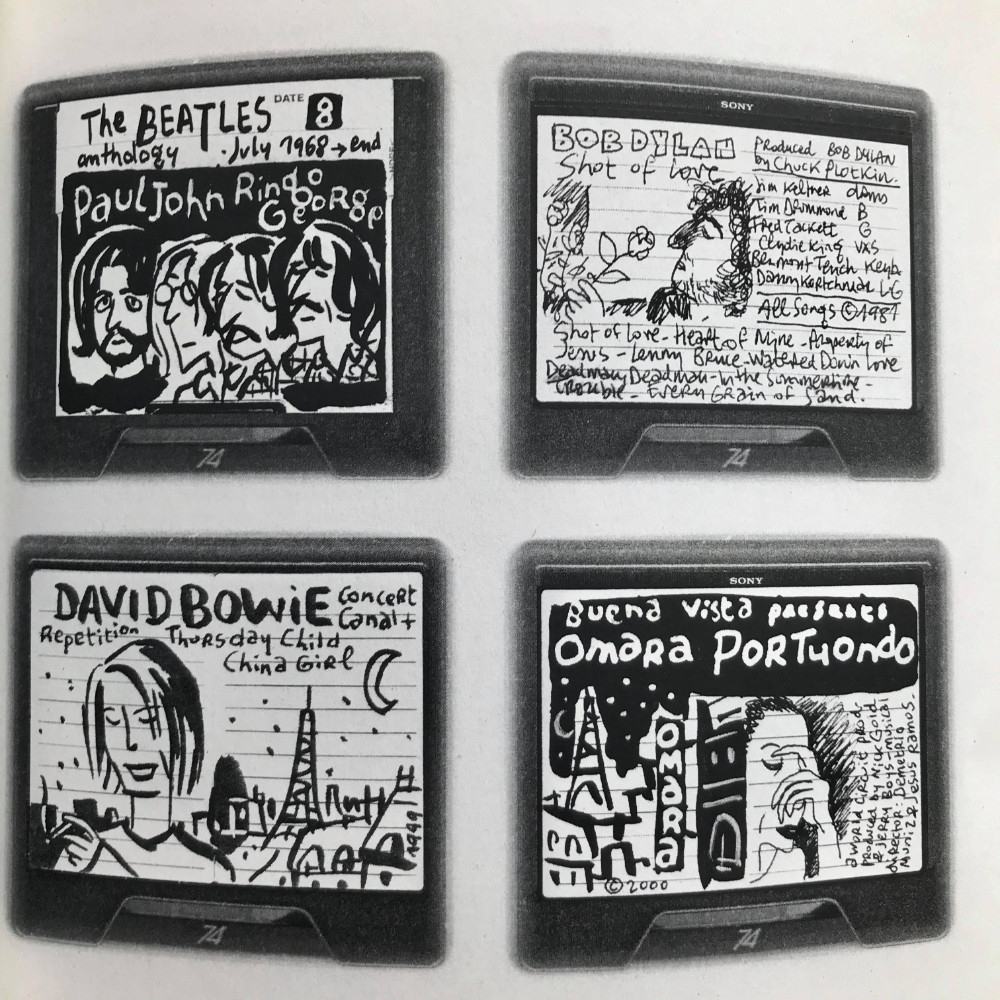 The BEATLES DATE 8
anthology . July 1968 → end
Paul John Ringo
George
74
SONY
BOB DYLAN
Shot of Love
Produced BOB DYLAN
by Chuck PLotkin.
Jim Keltner drms
Tim Drummond B
Fred Tackett G
Clydie King VXS
Benmont Tench Keyb.
Danny Kortchmar LG
All Songs © 1981
Shot of Love - Heart of Mine - Property of
Jesus - Lenny Bruce - Watered Down Love
Deadman, Deadman - In the Summertime -
Trouble - Every Grain of Sand.
74
DAVID BOWiE Concert
Canal+
Repetition Thursday Child
China Girl
1999
74
SONY
Buena Vista presents
Omara PORTuondo
OMARA
© 2000
a World Circuit prod.
produced by Nick Gold
& Jerry Boys - musical
director: Demetrio
Muniz & Jesus Ramos.
74